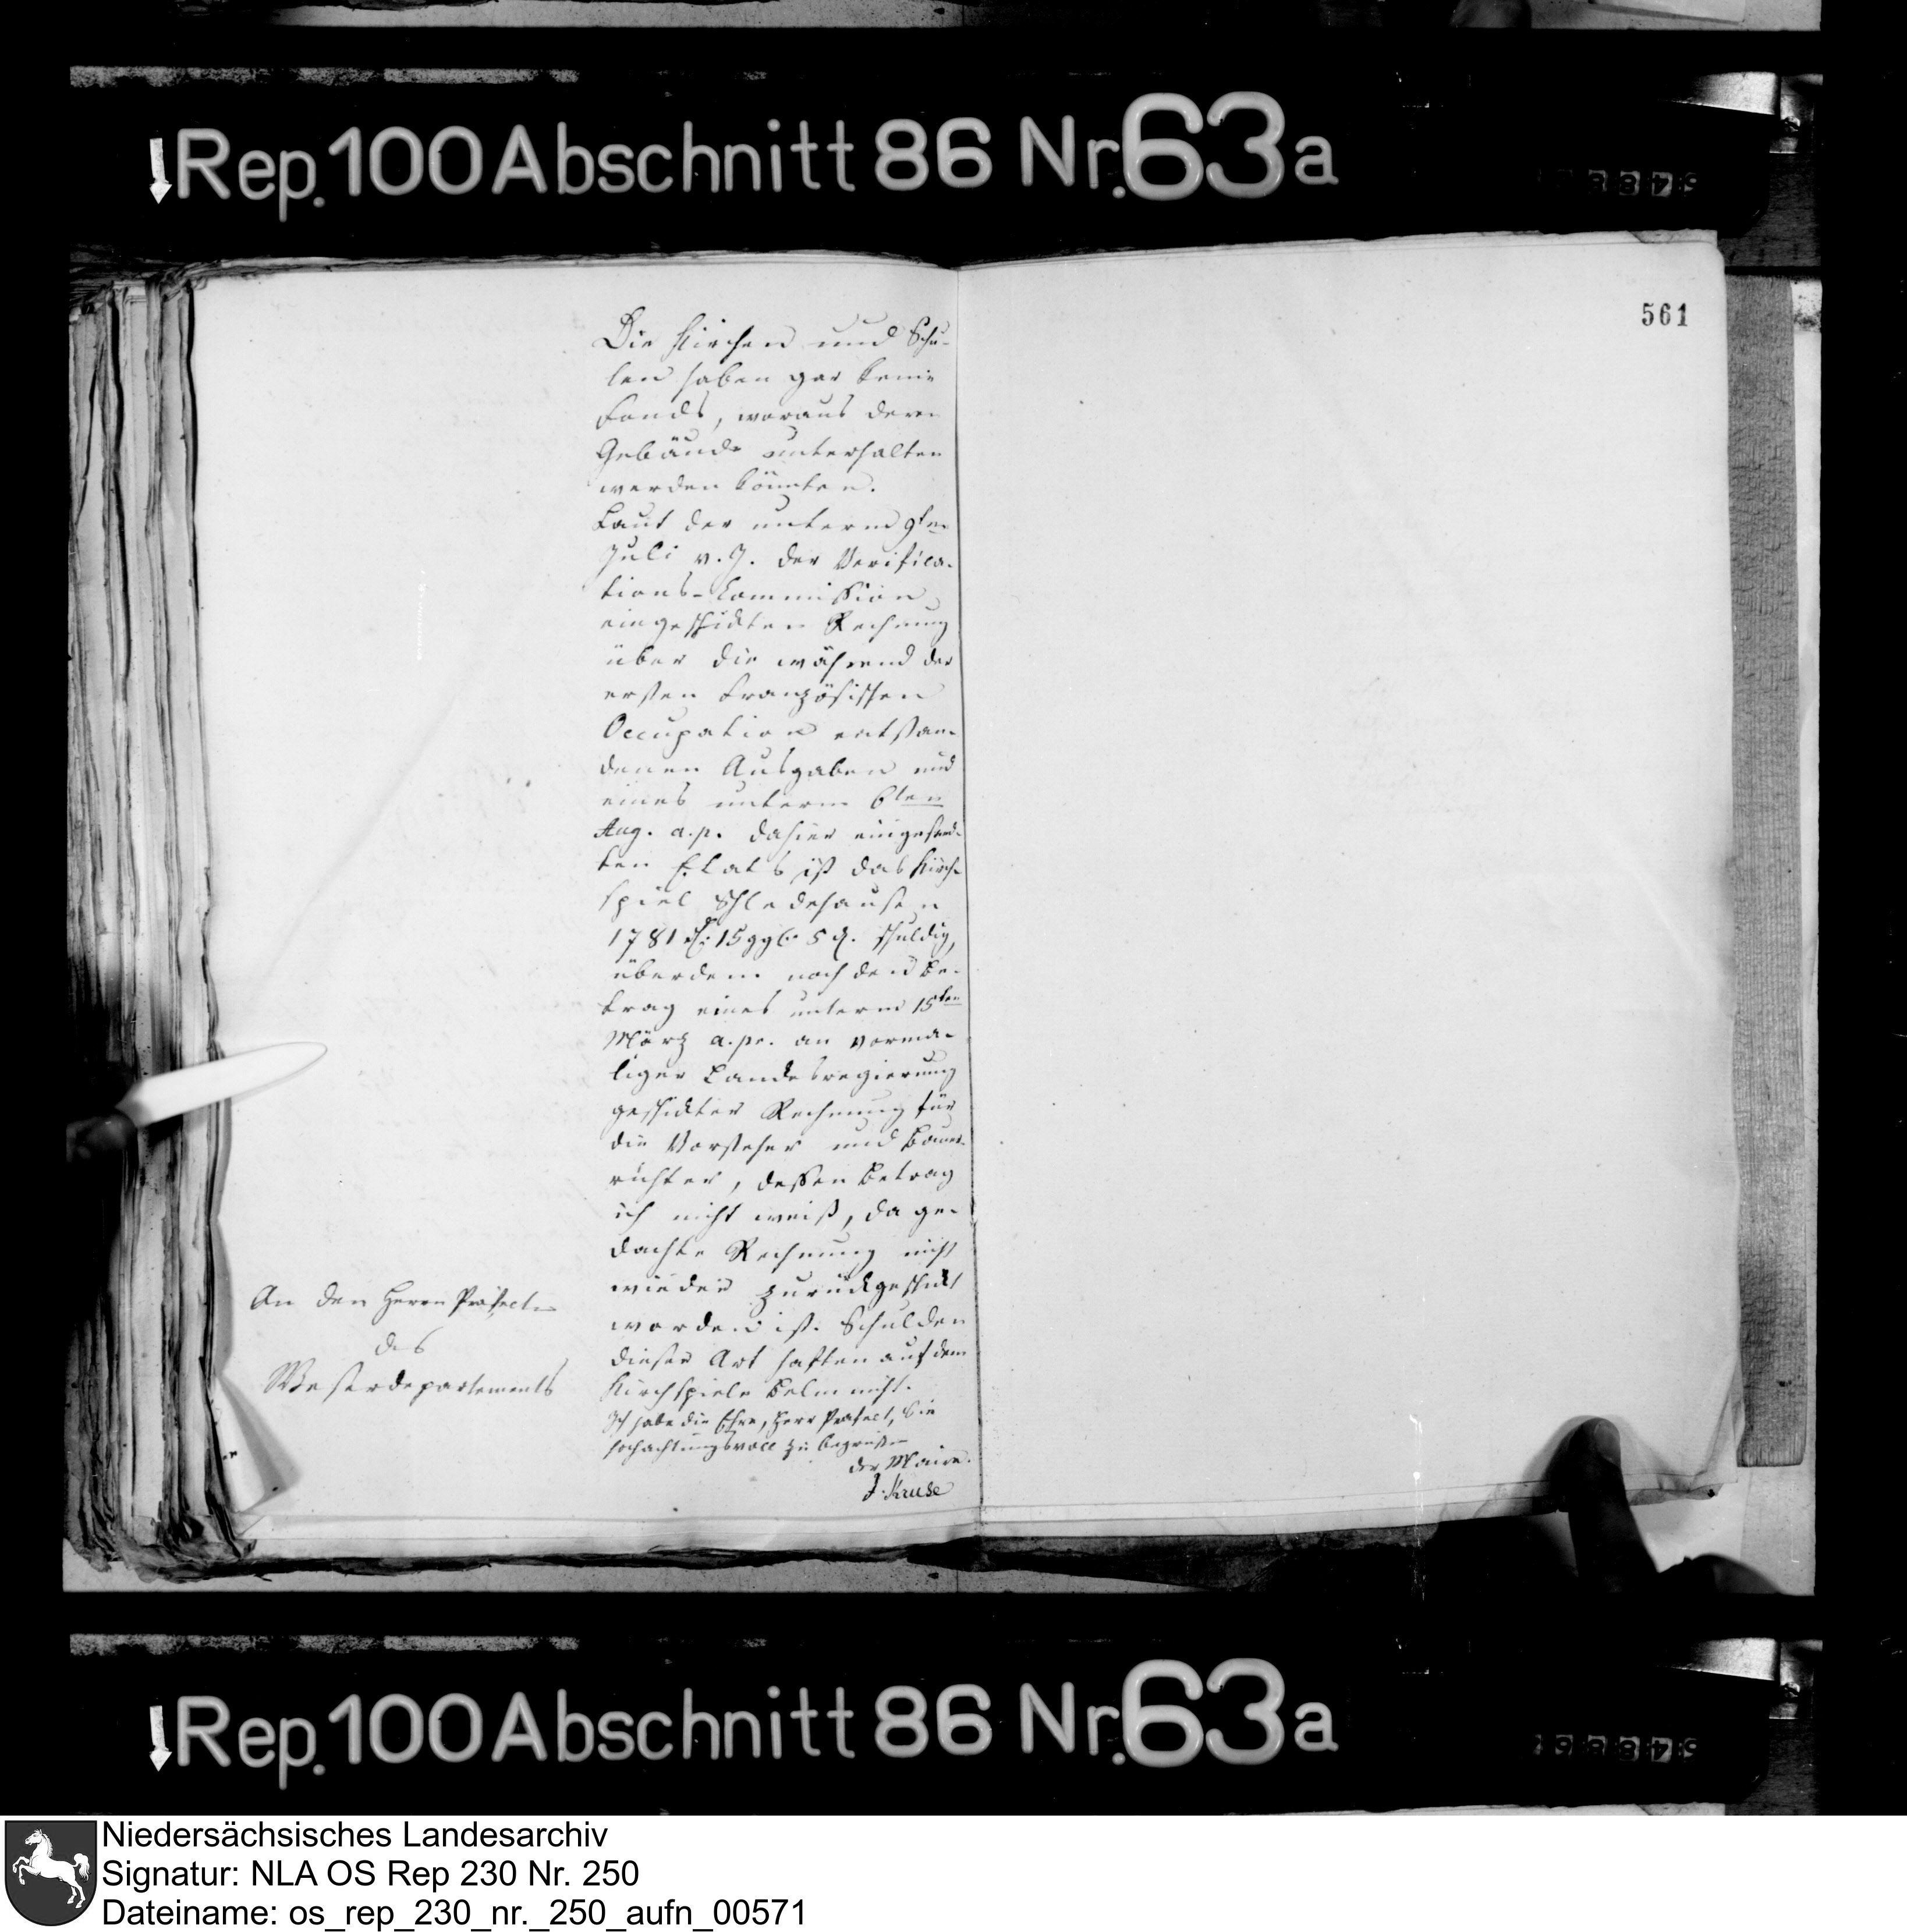 Rep. 100 Abschnitt 86 Nr. 63a
561
Die Kirchen und Schu-
len haben gar keine
Fonds, woraus deren
Gebäude unterhalten
werden könnten.
Laut der unterm 9ten
Juli v. J. der Verifica-
tions-Commission
eingeschickten Rechnung
über die während der
ersten französischen
Occupation entstan-
denen Ausgaben und
eines unterm 6ten
Aug. a. p. dahier eingesand-
ten Etats ist das Kirch-
spiel Schledehausen
1781 rt: 15 ggl. 5 d. schuldig,
überdem noch den Be-
trag eines unterm 15ten
März a. pr. an vorma-
liger Landesregierung
geschickter Rechnung für
die Vorsteher und Bauer-
richter, dessen Betrag
ich nicht weiß, da ge-
dachte Rechnung nicht
wieder zurückgeschickt
worden ist. Schulden
dieser Art haften auf dem
Kirchspiele Belm nicht.
Ich habe die Ehre, Herr Präfect, Sie
hochachtungsvoll zu begrüßen
der Maire.
J. Kruse
An den Herrn Präfecten
des
Weserdepartements
Rep. 100 Abschnitt 86 Nr. 63a
Niedersächsisches Landesarchiv
Signatur: NLA OS Rep 230 Nr. 250
Dateiname: os_rep_230_nr._250_aufn_00571